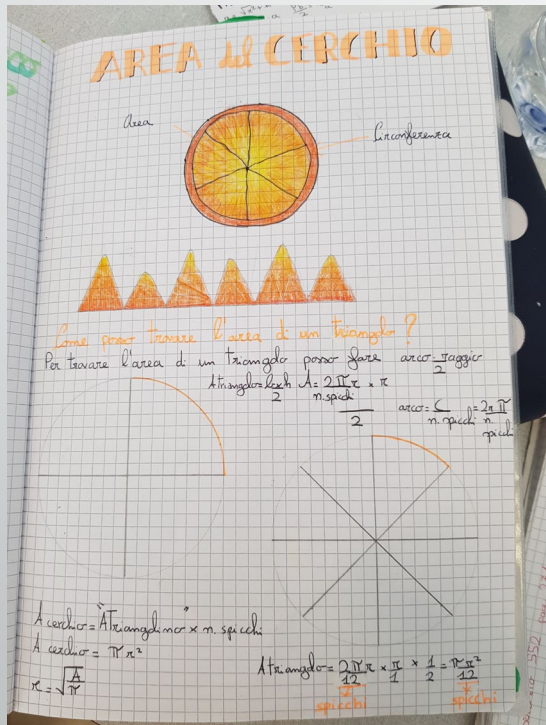 AREA del CERCHIO
Area
Circonferenza
Come posso trovare l'area di un triangolo?
Per trovare l'area di un triangolo posso fare arco·raggio/2
Atriangolo = bxh/2 A = 2πr/n.spicchi × r
2
arco = C/n. spicchi = 2rπ/n. spicchi
A cerchio = "ATriangolino" × n. spicchi
A cerchio = πr²
r = √A/π
Atriangolo = 2πr/12 × r/1 × 1/2 = πr²/12
spicchi spicchi